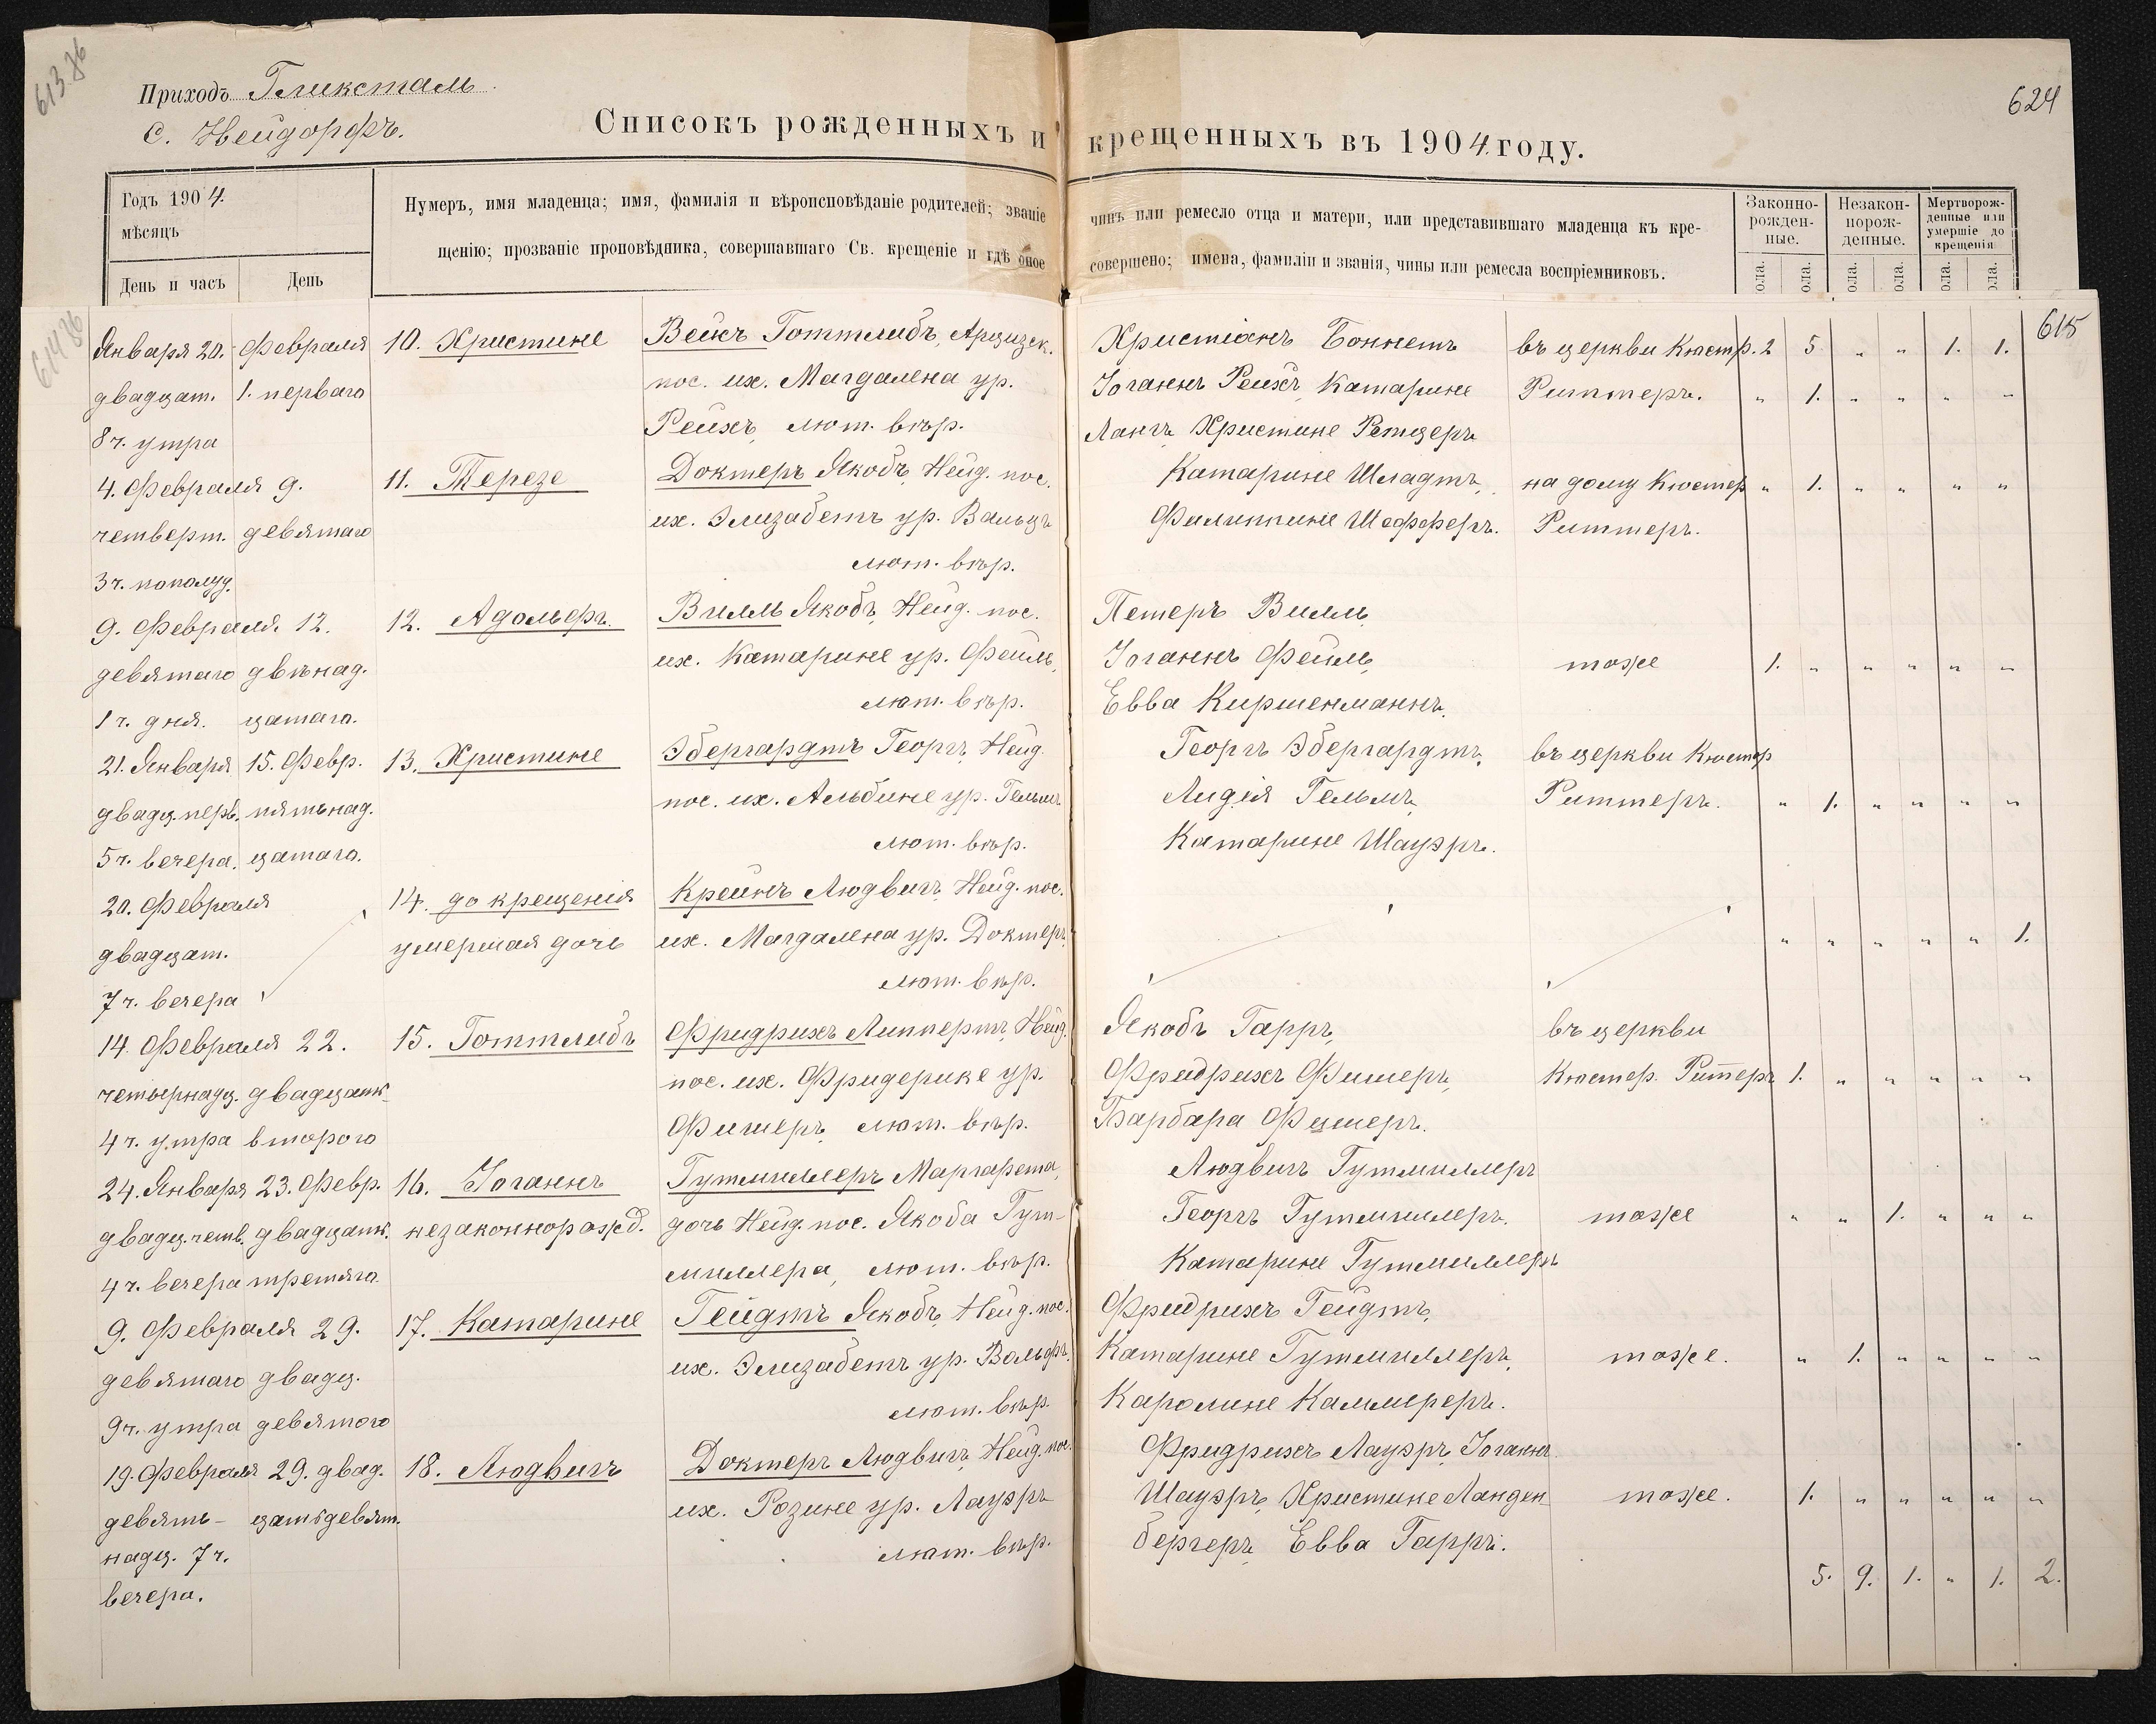 613 об
Приходъ Гликсталь
с. Нейдорфъ.
624
Списокъ рожденныхъ и крещенныхъ въ 1904 году.
Годъ 1904.
мѣсяцъ
День и часъ
День
Нумеръ, имя младенца; имя, фамилія и вѣроисповѣданіе родителей; званіе чинъ или ремесло отца и матери, или представившаго младенца къ кре-
щенію; прозваніе проповѣдника, совершавшаго Св. крещеніе и гдѣ оное совершено; имена, фамиліи и званія, чины или ремесла воспріемниковъ.
Законно-
рожден-
ные.
Незакон-
норож-
денные.
Мертворож-
денные или
умершіе до
крещенія
614 об
615
Января 20. Февраля 10. Христине Вейсъ Готтлибъ, Арцизск. Христіанъ Боннетъ въ церкви Кюстр. 2 5 „ „ 1. 1.
двадцат. 1. перваго пос. их. Магдалена ур. Іоганнъ Рейхъ, Катарине Риттеръ. „ 1. „ „ „ „
8 ч. утра Рейхъ, лют. вѣр. Лангъ, Христине Ретцеръ
4. Февраля 9. 11. Терезе Доктеръ Якобъ, Нейд. пос. Катарине Шладтъ, на дому Кюстер „ 1. „ „ „ „
четверт. девятаго их. Элизабетъ ур. Вальцъ Филиппине Шефферъ. Риттеръ.
3 ч. пополуд. лют. вѣр.
9. Февраля 12. 12. Адольфъ. Вилль Якобъ, Нейд. пос. Петеръ Вилль,
девятаго двѣнад. их. Катарине ур. Фейль, Іоганнъ Фейль, тоже 1. „ „ „ „ „
1 ч. дня. цатаго. лют. вѣр. Евва Киршенманнъ.
21. Января 15. Февр. 13. Христине Эбергардтъ Георгъ, Нейд. Георгъ Эбергардтъ, въ церкви Кюстер
двадц. перв. пятьнад. пос. их. Альбине ур. Гельмъ Лидія Гельмъ, Риттеръ. „ 1. „ „ „ „
5 ч. вечера. цатаго. лют. вѣр. Катарине Шауэръ.
20. Февраля 14. до крещенія Крейнъ Людвигъ, Нейд. пос.
двадцат. умершая дочь их. Магдалена ур. Доктеръ, „ „ „ „ „ 1.
7 ч. вечера лют. вѣр.
14. Февраля 22. 15. Готтлибъ Фридрихъ Липпертъ, Нейд. Якобъ Гарръ, въ церкви
четырнадц. двадцать пос. их. Фридерике ур. Фридрихъ Фишеръ, Кюстер. Риттеръ 1. „ „ „ „ „
4 ч. утра второго Фишеръ, лют. вѣр. Барбара Фишеръ.
24. Января 23. Февр. 16. Іоганнъ Гутмиллеръ Маргарета, Людвигъ Гутмиллеръ
двадц. четв. двадцать. незаконнорожд. дочь Нейд. пос. Якоба Гут- Георгъ Гутмиллеръ. тоже „ „ 1. „ „ „
4 ч. вечера третяго миллера, лют. вѣр. Катарине Гутмиллеръ
9. Февраля 29. 17. Катарине Гейдтъ Якобъ, Нейд. пос. Фридрихъ Гейдтъ,
девятаго двадц. их. Элизабетъ ур. Вольфъ, Катарине Гутмиллеръ, тоже. „ 1. „ „ „ „
9 ч. утра девятого лют. вѣр. Каролине Каммереръ.
19. Февраля 29. двад. 18. Людвигъ Доктеръ Людвигъ, Нейд. пос. Фридрихъ Лауэръ, Іоганнъ
девять- цатьдевят. их. Розине ур. Лауэръ Шауэръ, Христине Ланден тоже. 1. „ „ „ „ „
надц. 7 ч. лют. вѣр. бергеръ, Евва Гарръ.
вечера. 5. 9. 1. „ 1. 2.